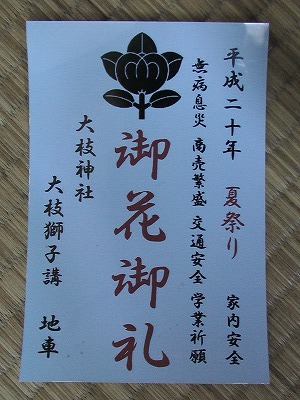 平成二十年 夏祭り 家内安全
無病息災 商売繁盛 交通安全 学業祈願
御花御礼
大枝神社
大枝獅子講 地車